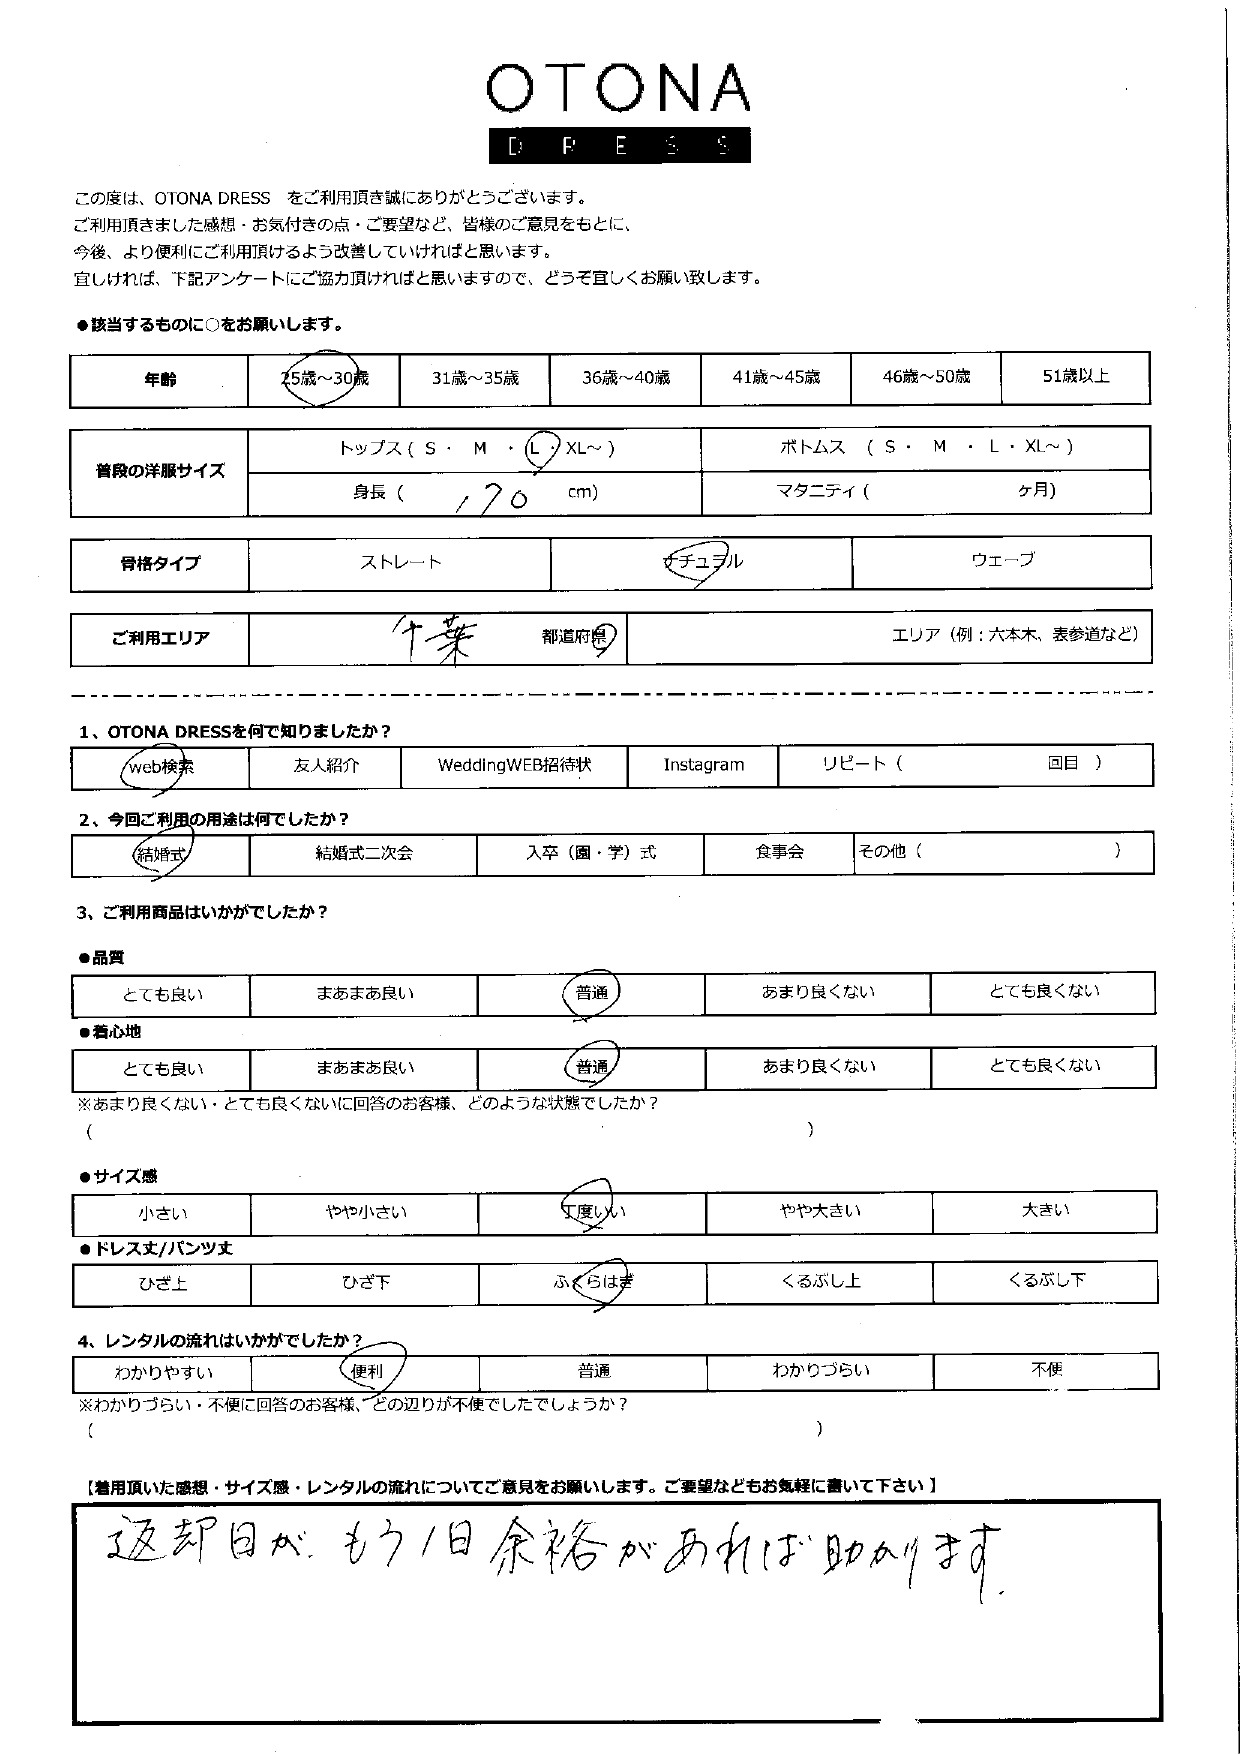 OTONA
DRESS
この度は、OTONA DRESS をご利用頂き誠にありがとうございます。
ご利用頂きました感想・お気付きの点・ご要望など、皆様のご意見をもとに、
今後、より便利にご利用頂けるよう改善していければと思います。
宜しければ、下記アンケートにご協力頂ければと思いますので、どうぞ宜しくお願い致します。
●該当するものに○をお願いします。
年齢 25歳～30歳 31歳～35歳 36歳～40歳 41歳～45歳 46歳～50歳 51歳以上
普段の洋服サイズ トップス ( S ・ M ・ L ・ XL～ ) ボトムス ( S ・ M ・ L ・ XL～ )
身長 ( 170 cm) マタニティ ( ケ月)
骨格タイプ ストレート ナチュラル ウェーブ
ご利用エリア 千葉 都道府県 エリア（例：六本木、表参道など）
1、OTONA DRESSを何で知りましたか？
web検索 友人紹介 WeddingWEB招待状 Instagram リピート ( 回目 )
2、今回ご利用の用途は何でしたか？
結婚式 結婚式二次会 入卒（園・学）式 食事会 その他 ( )
3、ご利用商品はいかがでしたか？
●品質
とても良い まあまあ良い 普通 あまり良くない とても良くない
●着心地
とても良い まあまあ良い 普通 あまり良くない とても良くない
※あまり良くない・とても良くないに回答のお客様、どのような状態でしたか？
( )
●サイズ感
小さい やや小さい 丁度いい やや大きい 大きい
●ドレス丈/パンツ丈
ひざ上 ひざ下 ふくらはぎ くるぶし上 くるぶし下
4、レンタルの流れはいかがでしたか？
わかりやすい 便利 普通 わかりづらい 不便
※わかりづらい・不便に回答のお客様、どの辺りが不便でしたでしょうか？
( )
【着用頂いた感想・サイズ感・レンタルの流れについてご意見をお願いします。ご要望などもお気軽に書いて下さい】
返却日が、もう1日余裕があれば助かります.